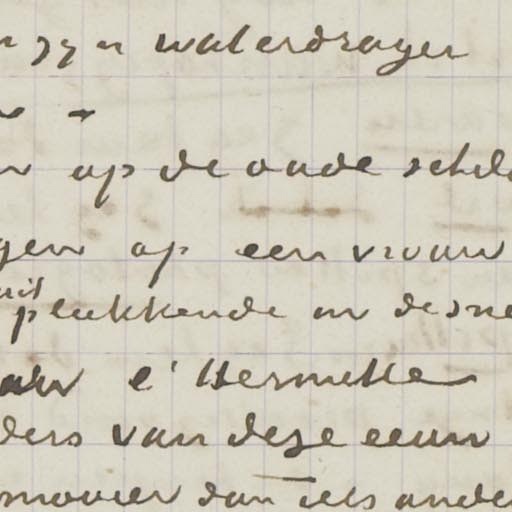 zyn waterdrager
op de oude schil
gen op een vrouw
uit
plukkende en de sne
l'Hermitte
ders van deze eeuw
mooier dan iets ander